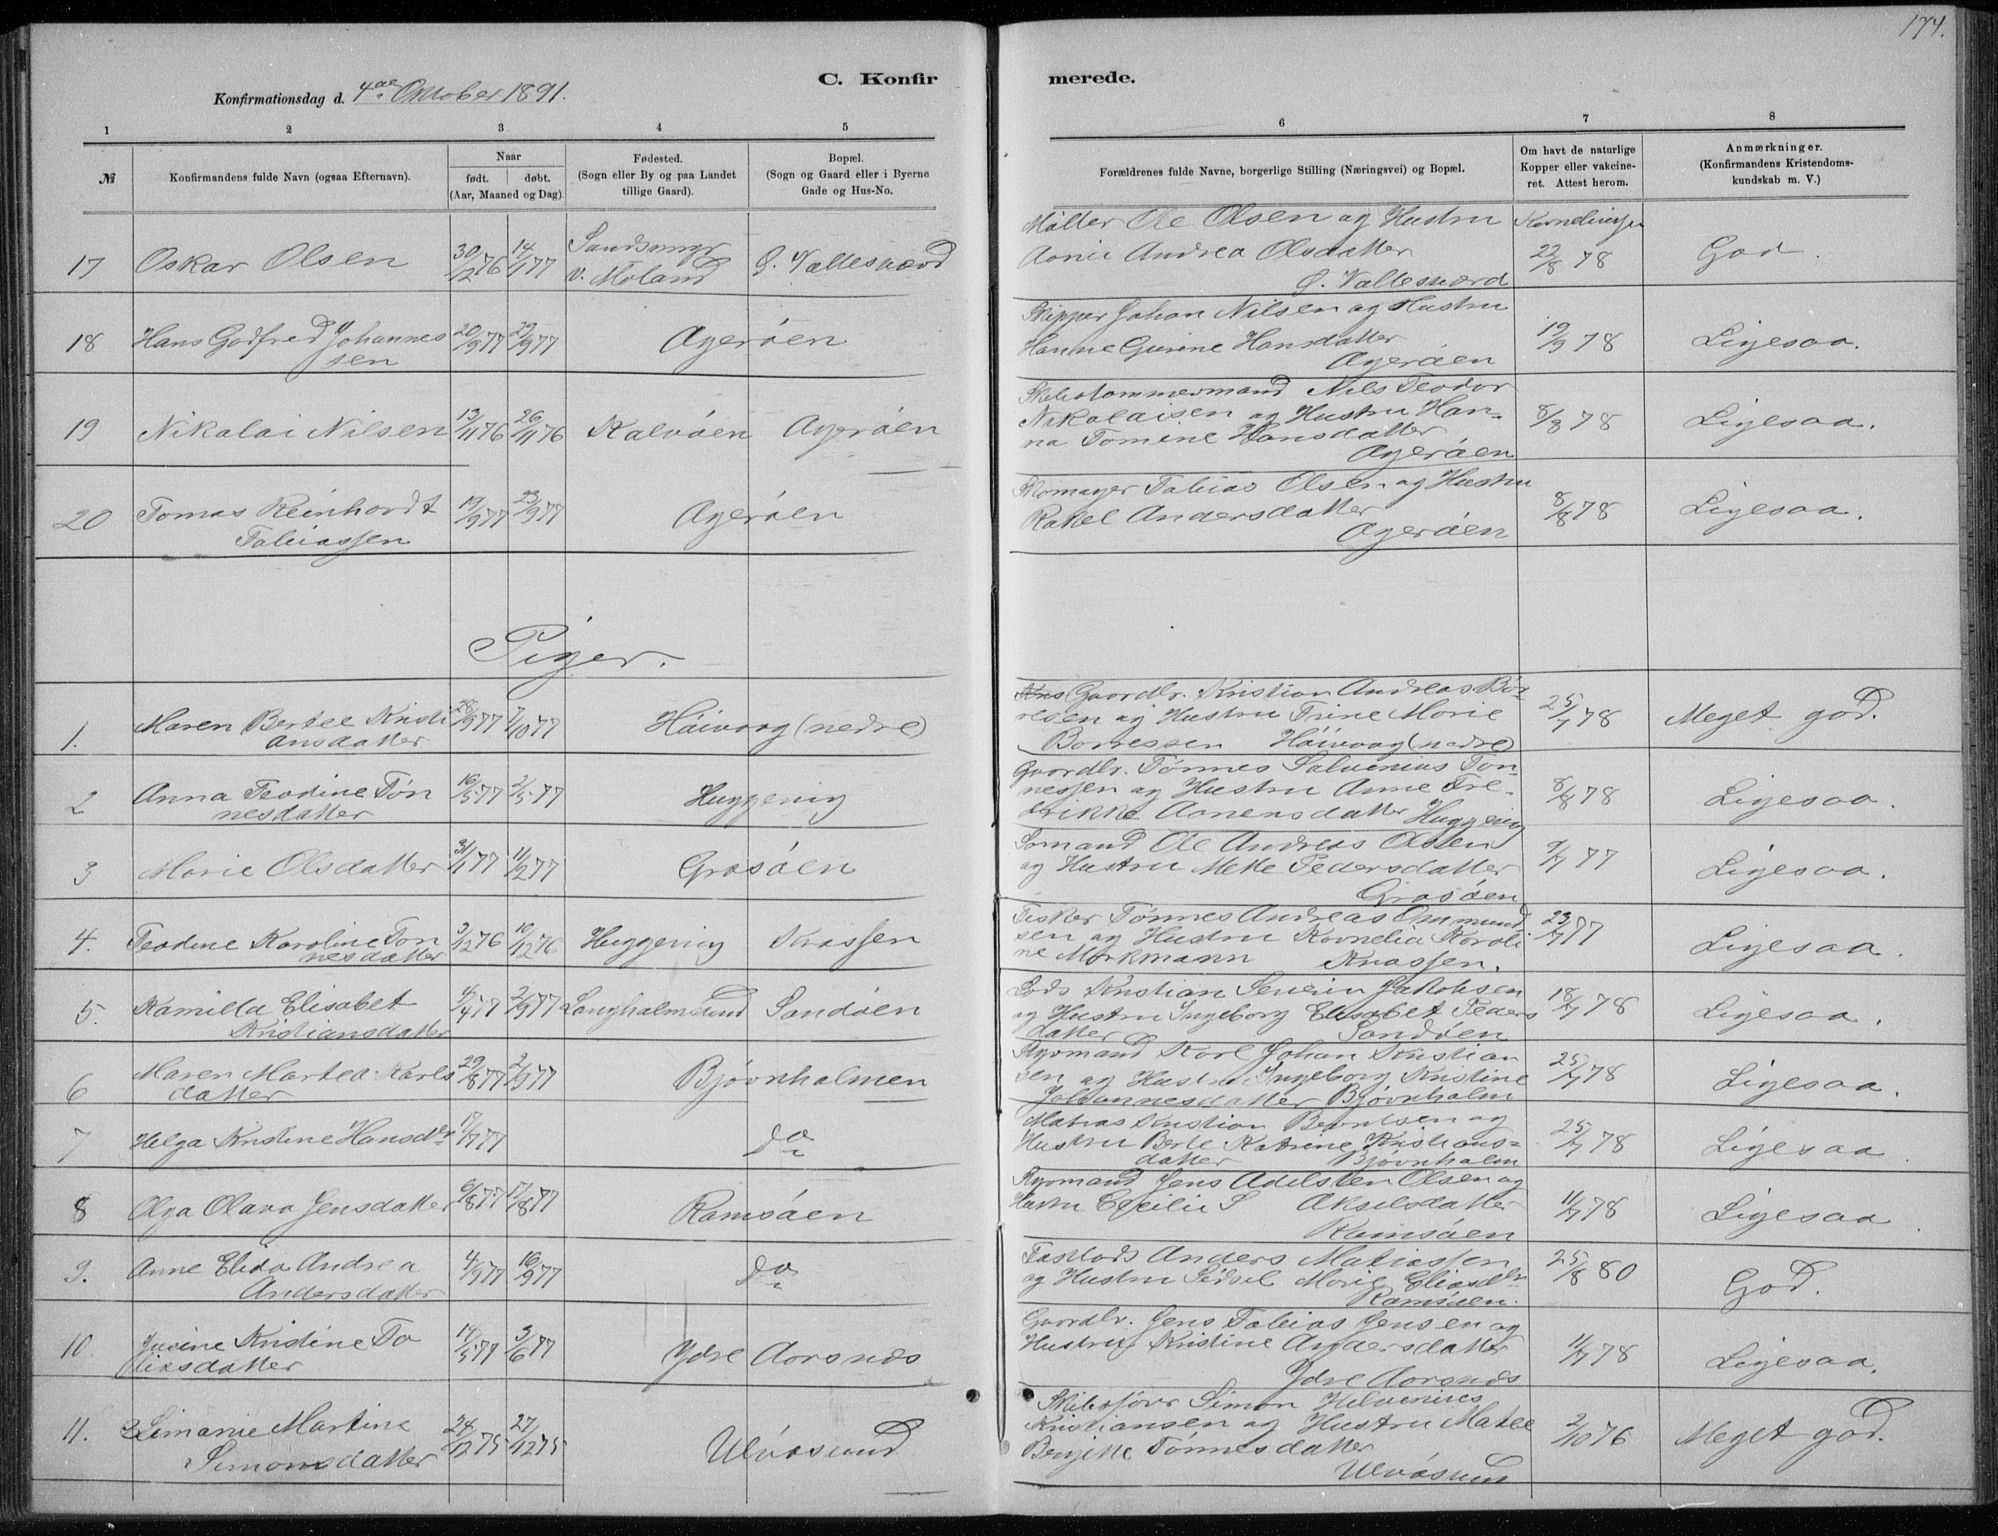 174.
C. Konfir merede.
Konfirmationsdag d. 4de Oktober 1891.
1 2 3 4 5 6 7 8
№
Konfirmandens fulde Navn (ogsaa Efternavn).
Naar
født. døbt.
(Aar, Maaned og Dag).
Fødested.
(Sogn eller By og paa Landet
tillige Gaard).
Bopæl.
(Sogn og Gaard eller i Byerne
Gade og Hus-No.
Forældrenes fulde Navne, borgerlige Stilling (Næringsvei) og Bopæl.
Om havt de naturlige
Kopper eller vakcine-
ret. Attest herom.
Anmærkninger.
(Konfirmandens Kristendoms-
kundskab m. V.)
17 Oskar Olsen 30/12 76 14/1 77
V. Moland
Ø. Vallesværd
Møller Ole Olsen og Hustru
Aanie Andrea Olsdatter
Ø. Vallesværd
22/8 78 God.
18 Hans Godfred Johannes
sen
20/9 77 29/9 77 Agerøen
Skipper Johan Nilsen og Hustru
Hanne Gurine Hansdatter
Agerøen
19/9 78 Ligesaa.
19 Nikolai Nilsen 13/11 76 26/11 76 Kalvøen Agerøen
Skibstømmermand Nils Teodor
Nikolaisen og Hustru Han-
na Tomine Hansdatter
Agerøen
8/8 78 Ligesaa.
20 Tomas Reinhardt
Tobiassen
19/9 77 23/9 77 Agerøen
Skomager Tobias Olsen og Hustru
Rakel Andersdatter
Agerøen
8/8 78 Ligesaa.
Piger.
1. Maren Bertee Kristi
ansdatter
28/9 77 7/10 77 Høivaag (nedre)
Gaardbr. Kristian Andreas Bør-
resen og Hustru Trine Marie
Børresen Høivaag (nedre)
25/7 78 Meget god.
2 Anna Teodine Tøn
nesdatter
16/5 77 2/5 77 Huggenig
Gaardbr. Tønnes Salvenius Tøn-
nessen og Hustru Anne Fre-
drikke Aanensdatter Huggenig
8/8 78 Ligesaa.
3 Marie Olsdatter 31/1 77 11/2 77 Grosøen
Sømand Ole Andreas Olsen
og Hustru Mette Pedersdatter
Grosøen
9/7 77 Ligesaa.
4. Teodine Karoline Tøn
nesdatter
3/12 76 10/12 76 Huggenig Knassen
Fisker Tønnes Andreas Ommund
sen og Hustru Kornelia Karoli
ne Morkmann Knassen.
23/7 77 Ligesaa.
5. Kamilla Elisabet
Kristiansdatter
4/4 77 2/9 77 Langholmsund Sandøen
Lods Kristian Severin Jakobsen
og Hustru Ingeborg Elisabet Peders
datter Sandøen
18/7 78 Ligesaa.
6 Maren Martea Karls
datter
29/8 77 2/9 77 Bjørnholmen
Rormand Karl Johan Kristian
sen og Hustru Ingeborg Kristine
Johannesdatter Bjørnholm
25/7 78 Ligesaa.
7 Helga Kristine Hansdtr 17/7 77 Do
Matias Kristian Berntsen og
Hustru Berte Katrine Kristians-
datter Bjørnholm
25/7 78 Ligesaa.
8 Olga Olava Jensdatter 6/8 77 17/8 77 Ramsøen
Rormand Jens Adelsten Olsen og
Hustru Cecilie S Akselsdatter
Ramsøen
11/7 78 Ligesaa.
9. Anne Elida Andrea
Andersdatter
4/9 77 16/9 77 Do
Fastlods Anders Matiassen
og Hustru Sidsel Marie Eliasdtr
Ramsøen.
25/8 80 God.
10. Jusine Kristine To
biasdatter
14/5 77 3/6 77 Ydre Aarsnes
Gaardbr. Jens Tobias Jensen og
Hustru Kristine Andersdatter
Ydre Aarsnes
11/7 78 Ligesaa.
11. Simanie Martine
Simonsdatter
24/12 75 27/12 75 Ulvøsund
Skibsfører Simon
Kristiansen og Hustru Matee
Bergitte Tønnesdatter
Ulvøsund
2/10 76 Meget god.